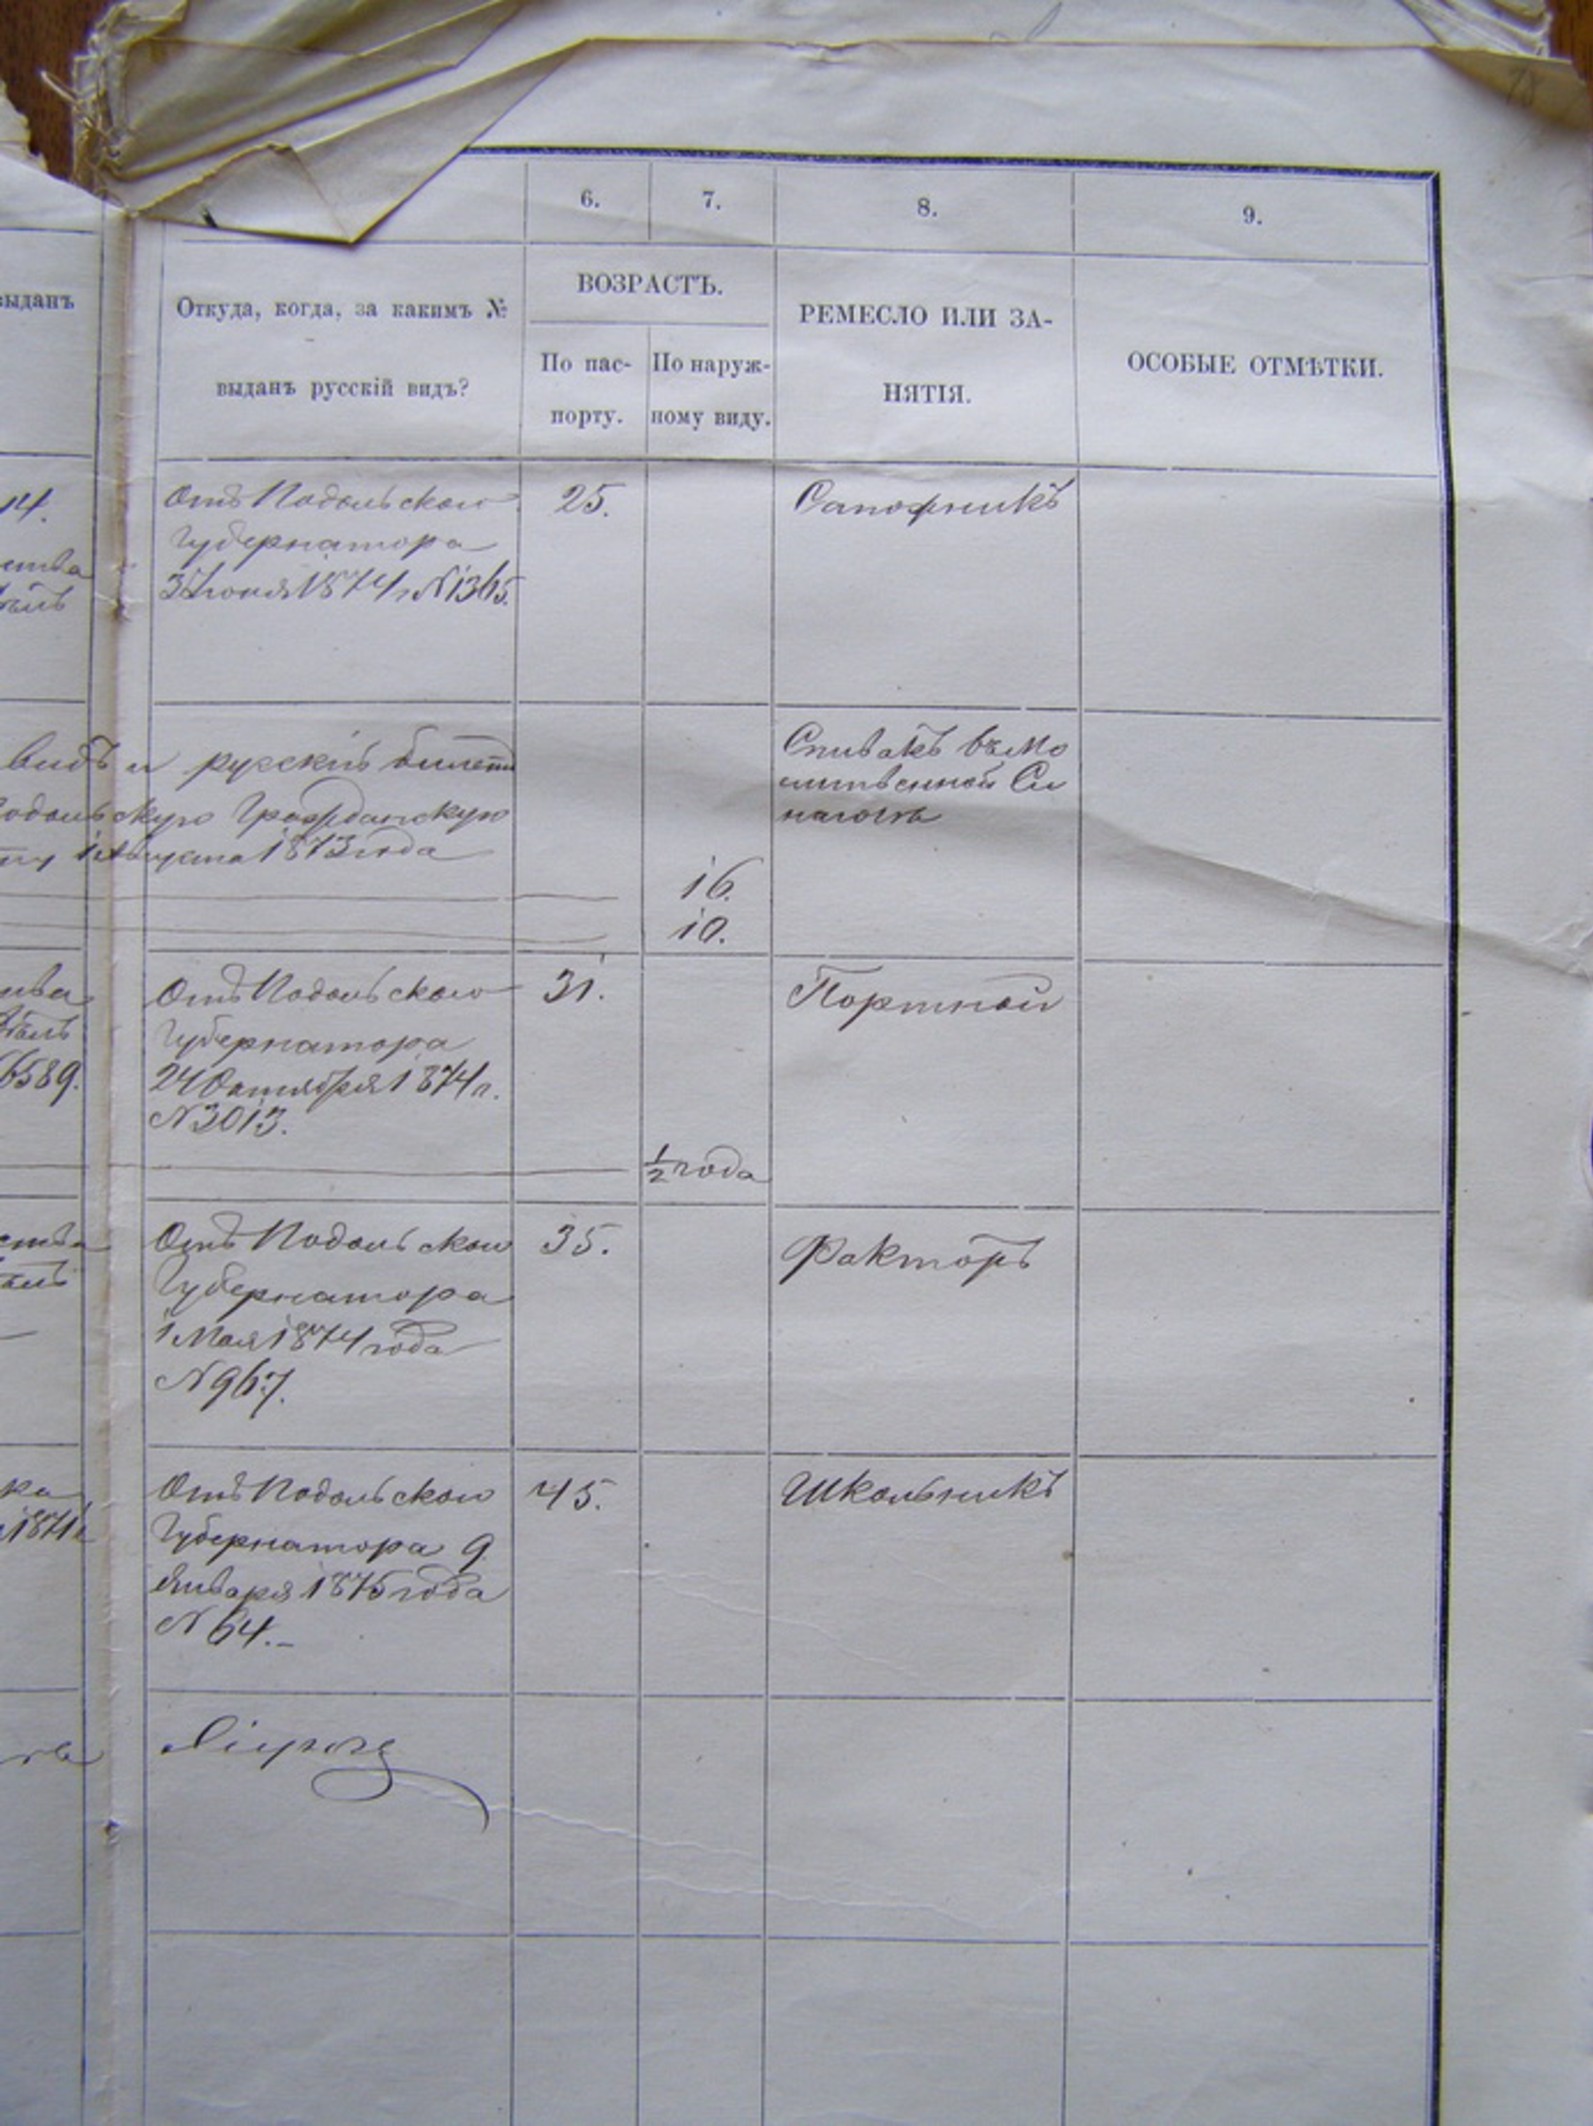 6.
7.
8.
9.
выданъ
Откуда, когда, за какимъ №
выданъ русскій видъ?
ВОЗРАСТЪ.
По пас-
порту.
По наруж-
ному виду.
РЕМЕСЛО ИЛИ ЗА-
НЯТІЯ.
ОСОБЫЕ ОТМѢТКИ.
14.
Отъ Подольскаго
Губернатора
3 Іюня 1874 г. N 1365.
25.
Сапожникъ
видъ и русскій билетъ
Подольскую Гражданскую
1 Августа 1873 года
16.
10.
Спивакъ въ мо
литвенной Си
нагогѣ
6589.
Отъ Подольскаго
Губернатора
24 Октября 1874 г.
N 3013.
31.
1/2 года
Портной
Отъ Подольскаго
Губернатора
1 Мая 1874 года
N 967.
35.
Факторъ
1871
Отъ Подольскаго
Губернатора 9
Января 1875 года
N 64.-
45.
Школьникъ